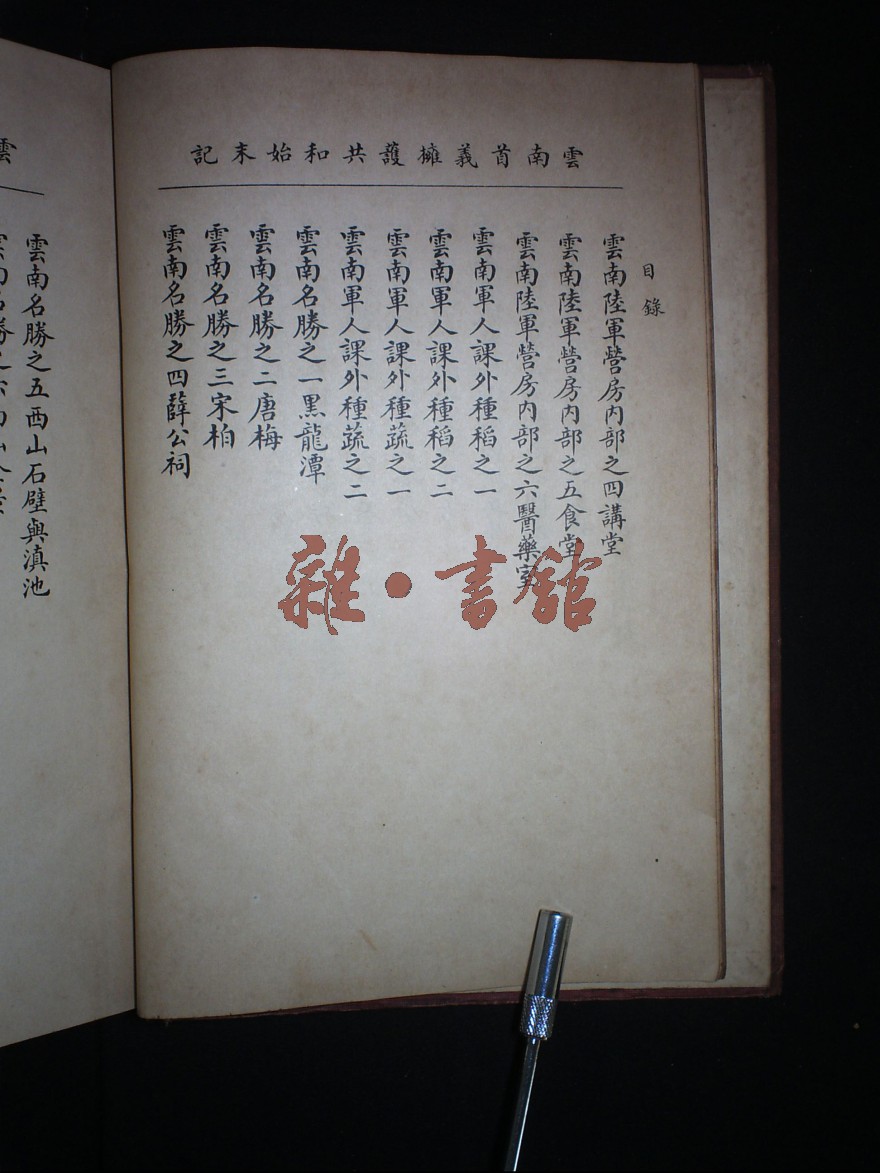 雲南首義擁護共和始末記
目錄
雲南陸軍營房內部之四講堂
雲南陸軍營房內部之五食堂
雲南陸軍營房內部之六醫藥室
雲南軍人課外種稻之一
雲南軍人課外種稻之二
雲南軍人課外種蔬之一
雲南軍人課外種蔬之二
雲南名勝之一黑龍潭
雲南名勝之二唐梅
雲南名勝之三宋柏
雲南名勝之四薛公祠
雜·書館
雲
雲南名勝之五西山石壁與滇池
雲南名勝之六